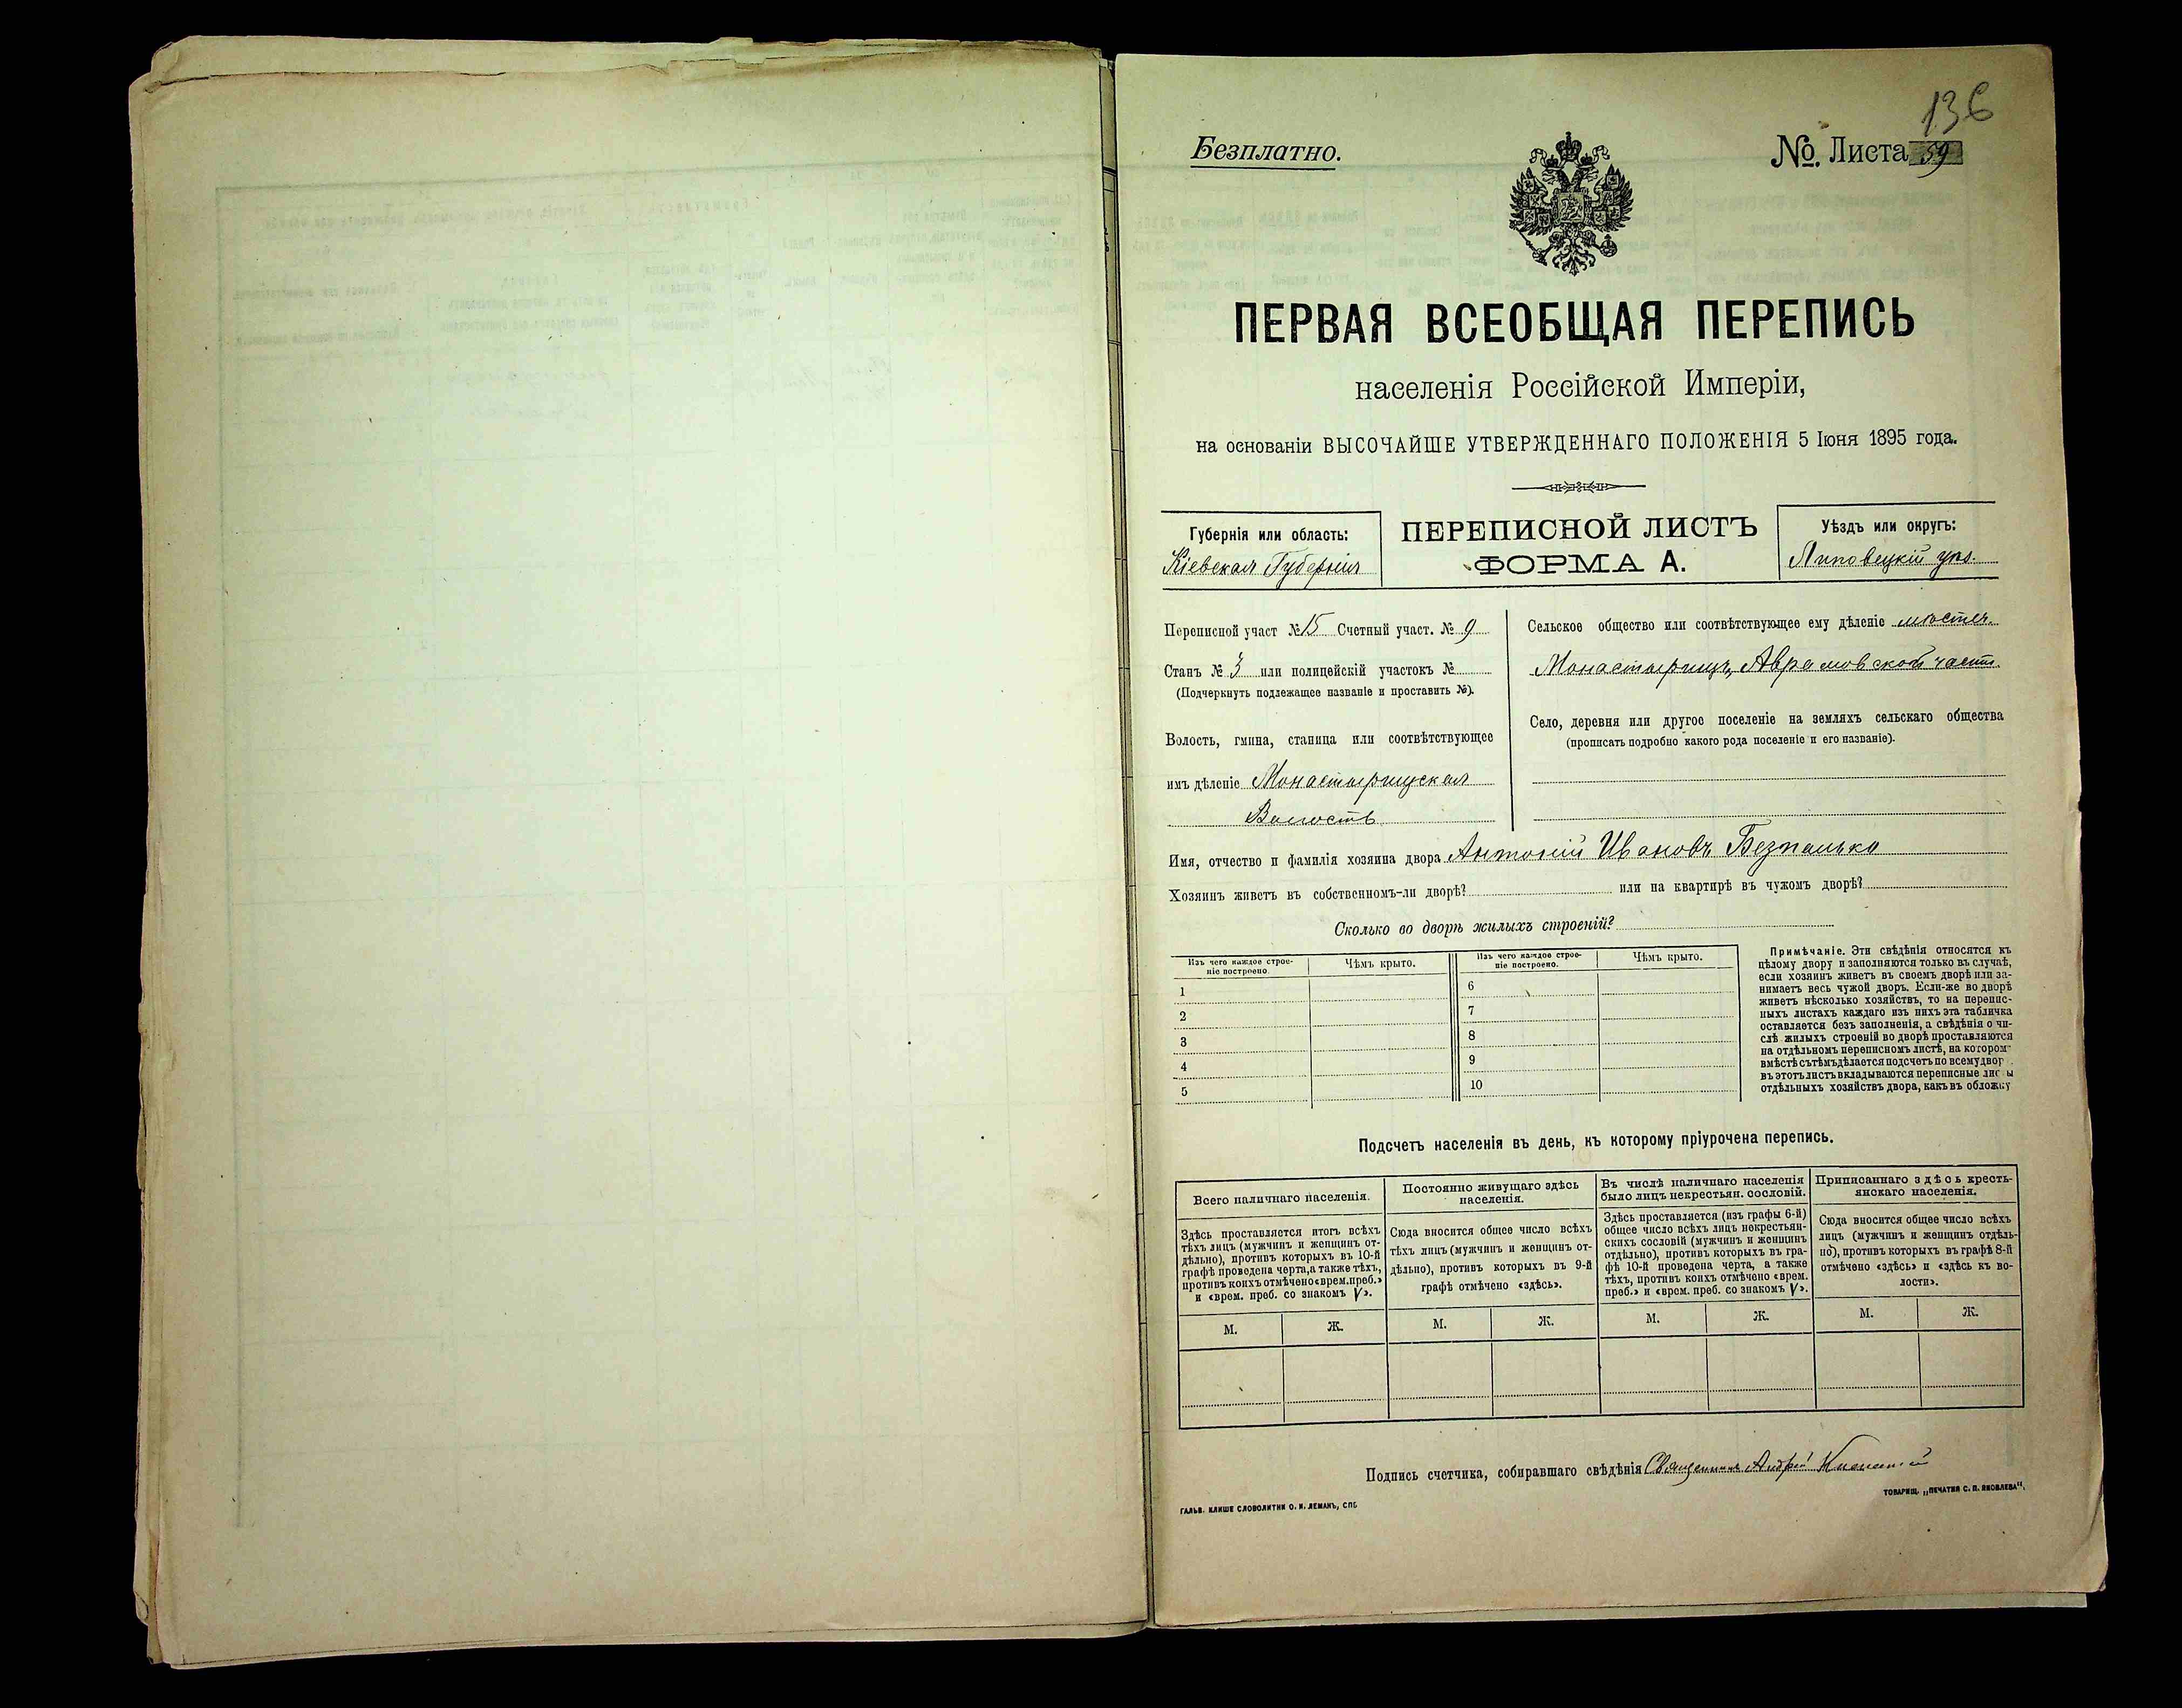 136
Безплатно.
№ Листа 59
ПЕРВАЯ ВСЕОБЩАЯ ПЕРЕПИСЬ
населенія Россійской Имперіи,
на основаніи ВЫСОЧАЙШЕ УТВЕРЖДЕННАГО ПОЛОЖЕНІЯ 5 Іюня 1895 года.
Губернія или область:
Кіевская Губернія
ПЕРЕПИСНОЙ ЛИСТЪ
ФОРМА А.
Уѣздъ или округъ:
Липовецкій уѣз.
Переписной участ № 15 Счетный участ. № 9
Станъ № 3 или полицейскій участокъ №
(Подчеркнуть подлежащее названіе и проставить №).
Волость, гмина, станица или соотвѣтствующее
имъ дѣленіе Монастырищская
Волость
Сельское общество или соотвѣтствующее ему дѣленіе мѣстеч.
Монастырищъ, Аврамовской части
Село, деревня или другое поселеніе на земляхъ сельскаго общества
(прописать подробно какого рода поселеніе и его названіе).
Имя, отчество и фамилія хозяина двора Антоній Ивановъ Безпалько
Хозяинъ живетъ въ собственномъ-ли дворѣ? или на квартирѣ въ чужомъ дворѣ?
Сколько во дворѣ жилыхъ строеній?
Изъ чего каждое строе-
ніе построено.
Чѣмъ крыто.
Изъ чего каждое строе-
ніе построено.
Чѣмъ крыто.
1
2
3
4
5
6
7
8
9
10
Примѣчаніе. Эти свѣдѣнія относятся къ
цѣлому двору и заполняются только въ случаѣ,
если хозяинъ живетъ въ своемъ дворѣ или за-
нимаетъ весь чужой дворъ. Если-же во дворѣ
живетъ нѣсколько хозяйствъ, то на перепис-
ныхъ листахъ каждаго изъ нихъ эта табличка
оставляется безъ заполненія, а свѣдѣнія о чи-
слѣ жилыхъ строеній во дворѣ проставляются
на отдѣльномъ переписномъ листѣ, на котором
вмѣстѣ съ тѣмъ дѣлается подсчетъ по всему двор
въ этотъ листъ вкладываются переписные листы
отдѣльныхъ хозяйствъ двора, какъ въ обложку
Подсчетъ населенія въ день, къ которому пріурочена перепись.
Всего наличнаго населенія.
Здѣсь проставляется итогъ всѣхъ
тѣхъ лицъ (мужчинъ и женщинъ от-
дѣльно), противъ которыхъ въ 10-й
графѣ проведена черта, а также тѣхъ,
противъ коихъ отмѣчено «врем. преб.»
и «врем. преб. со знакомъ V».
Постоянно живущаго здѣсь
населенія.
Сюда вносится общее число всѣхъ
тѣхъ лицъ (мужчинъ и женщинъ от-
дѣльно), противъ которыхъ въ 9-й
графѣ отмѣчено «здѣсь».
Въ числѣ наличнаго населенія
было лицъ некрестьян. сословій.
Здѣсь проставляется (изъ графы 6-й)
общее число всѣхъ лицъ некрестьян-
скихъ сословій (мужчинъ и женщинъ
отдѣльно), противъ которыхъ въ гра-
фѣ 10-й проведена черта, а также
тѣхъ, противъ коихъ отмѣчено «врем.
преб.» и «врем. преб. со знакомъ V».
Приписаннаго здѣсь кресть-
янскаго населенія.
Сюда вносится общее число всѣхъ
лицъ (мужчинъ и женщинъ отдѣль-
но), противъ которыхъ въ графѣ 8-й
отмѣчено «здѣсь» и «здѣсь къ во-
лости».
М. Ж. М. Ж. М. Ж. М. Ж.
Подпись счетчика, собиравшаго свѣдѣнія Священникъ Андрей
ГАЛЬВ. КЛИШЕ СЛОВОЛИТНИ О. И. ЛЕМАНЪ, СПБ
ТОВАРИЩ. „ПЕЧАТНЯ С. П. ЯКОВЛЕВА",